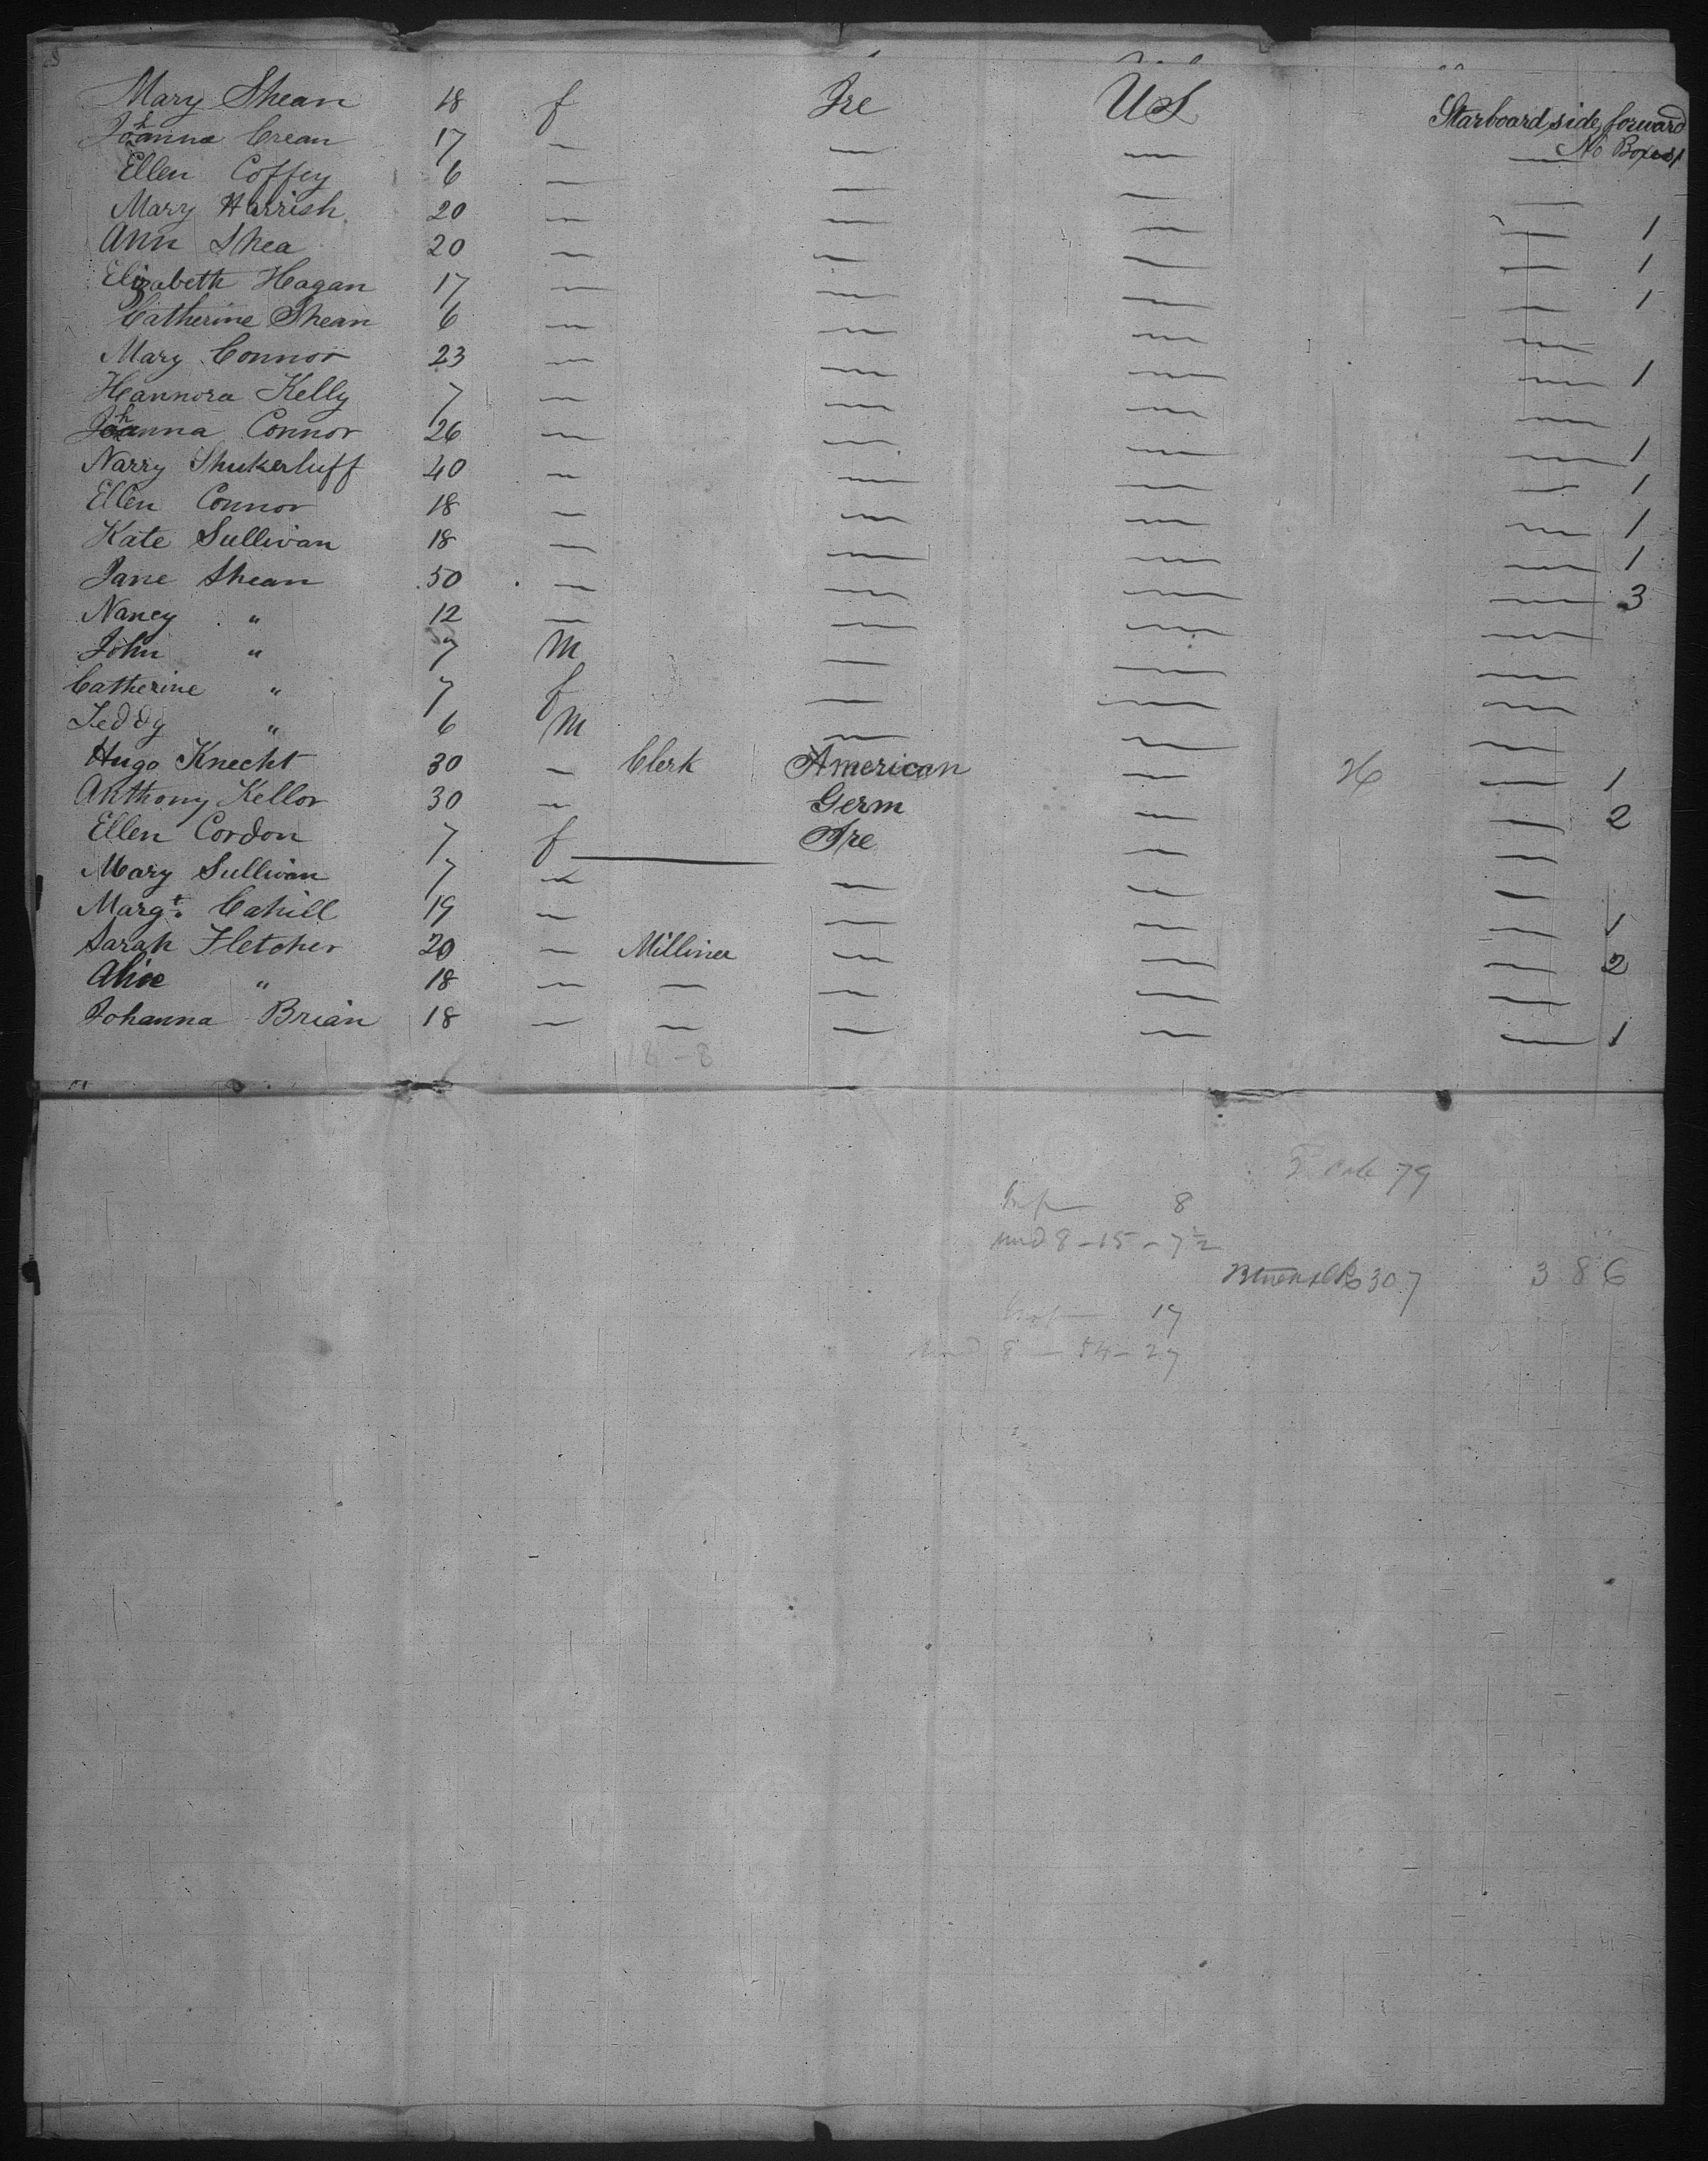 Mary Shean 18 f Ire U S Starboard side forward
No Boxes 1
Johanna Crean 17 — — — —
Ellen Coffey 6 — — — —
Mary Harrish 20 — — — — 1
Ann Shea 20 — — — — 1
Elizabeth Hagan 17 — — — — 1
Catherine Shean 6 — — — —
Mary Connor 23 — — — — 1
Hannora Kelly 7 — — — —
Johanna Connor 26 — — — — 1
Narry Shukerluff 40 — — — — 1
Ellen Connor 18 — — — — 1
Kate Sullivan 18 — — — — 1
Jane Shean 50 — — — — 3
Nancy " 12 — — — —
John " 7 M — — —
Catherine " 7 f — — —
Teddy " 6 M — — —
Hugo Knecht 30 — Clerk American — — 1
Anthony Kellor 30 — Germ — — 2
Ellen Cordon 7 f — Ire — —
Mary Sullivan 7 — — — —
Margt. Cahill 19 — — — — 1
Sarah Fletcher 20 — Milliner — — — 2
Alice " 18 — — — — —
Johanna Brian 18 — — — — — 1
18 - 8
79
8
8 - 15 - 7½
307 386
19
8 - 54 - 27